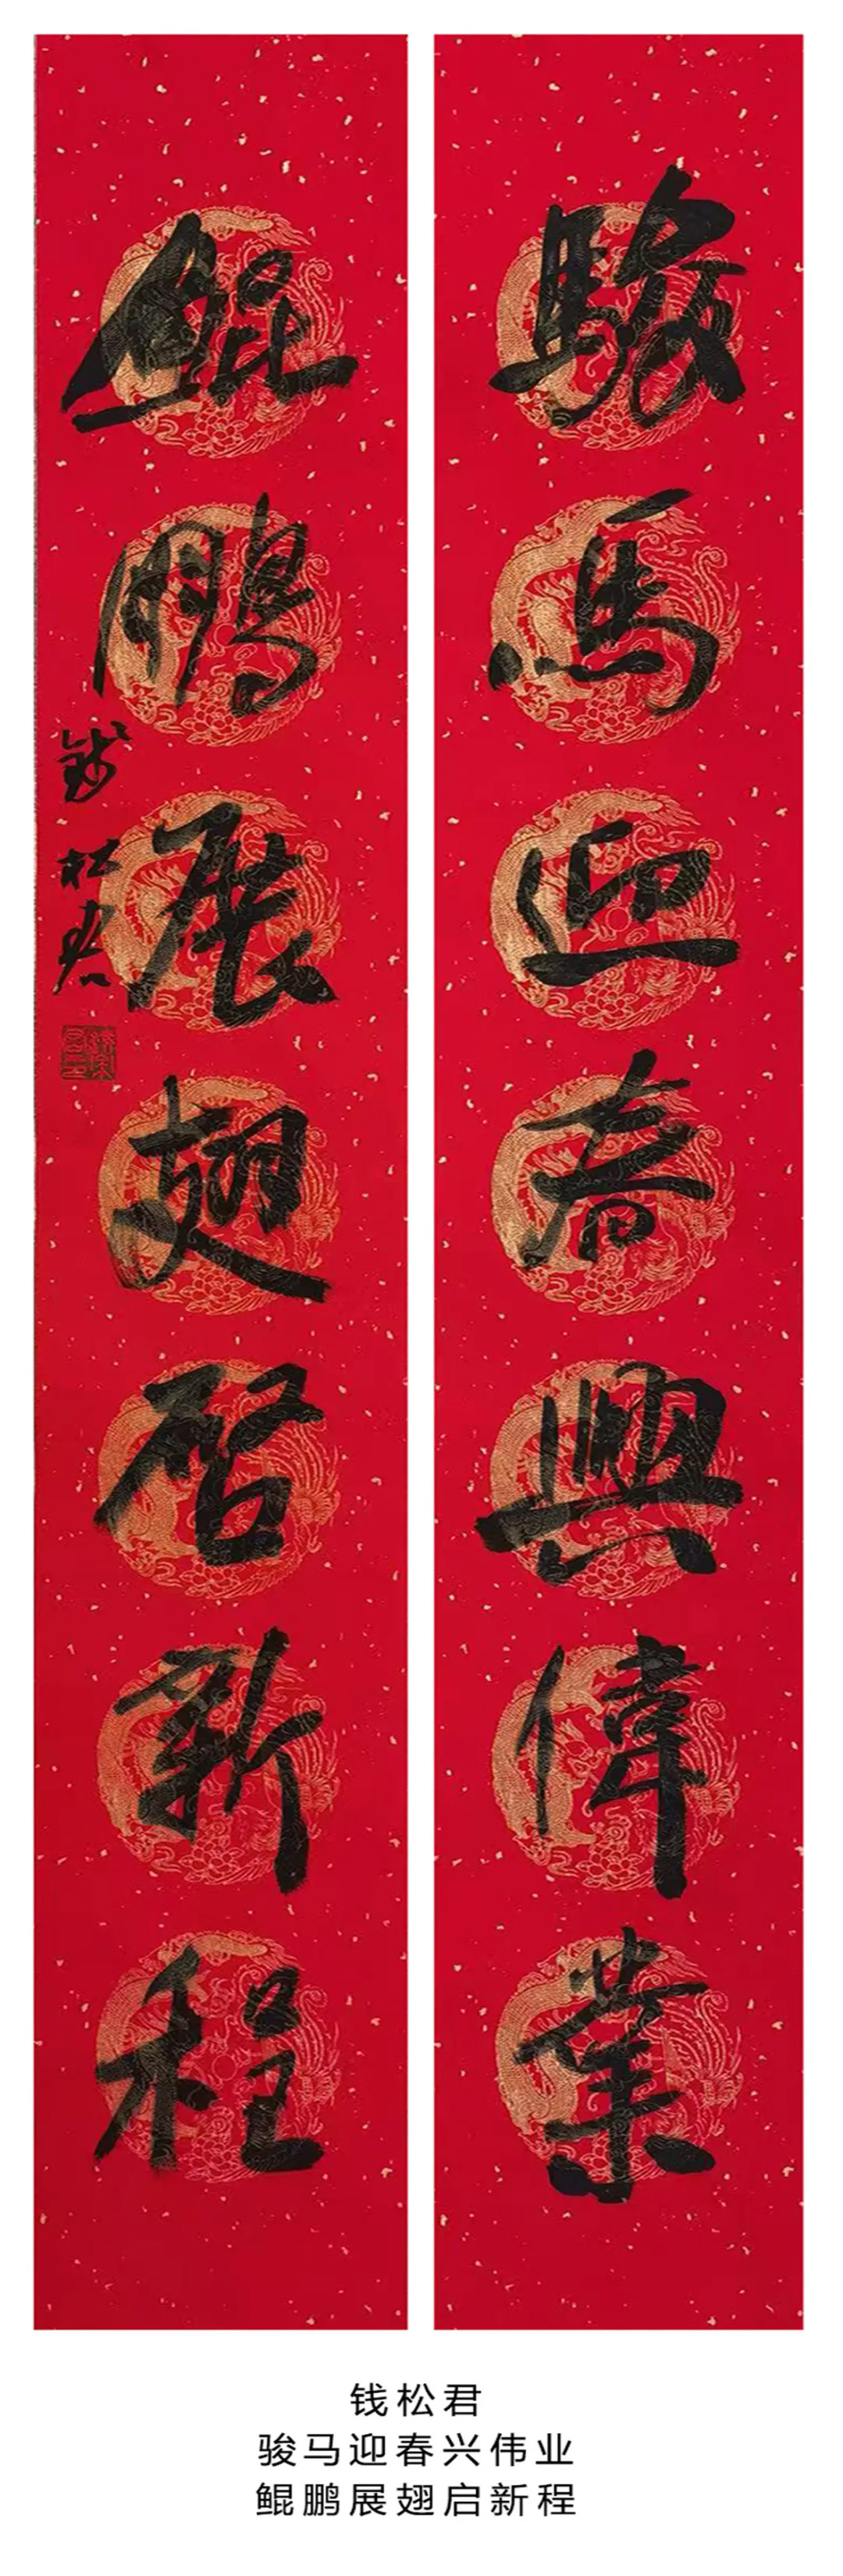 駿馬迎春興偉業
鯤鵬展翅启新程
錢松君
钱松君
骏马迎春兴伟业
鲲鹏展翅启新程